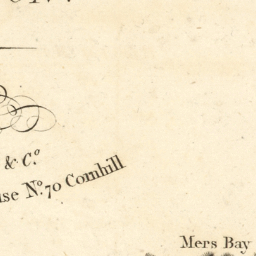 & C.o
use No. 70 Cornhill
Mers Bay